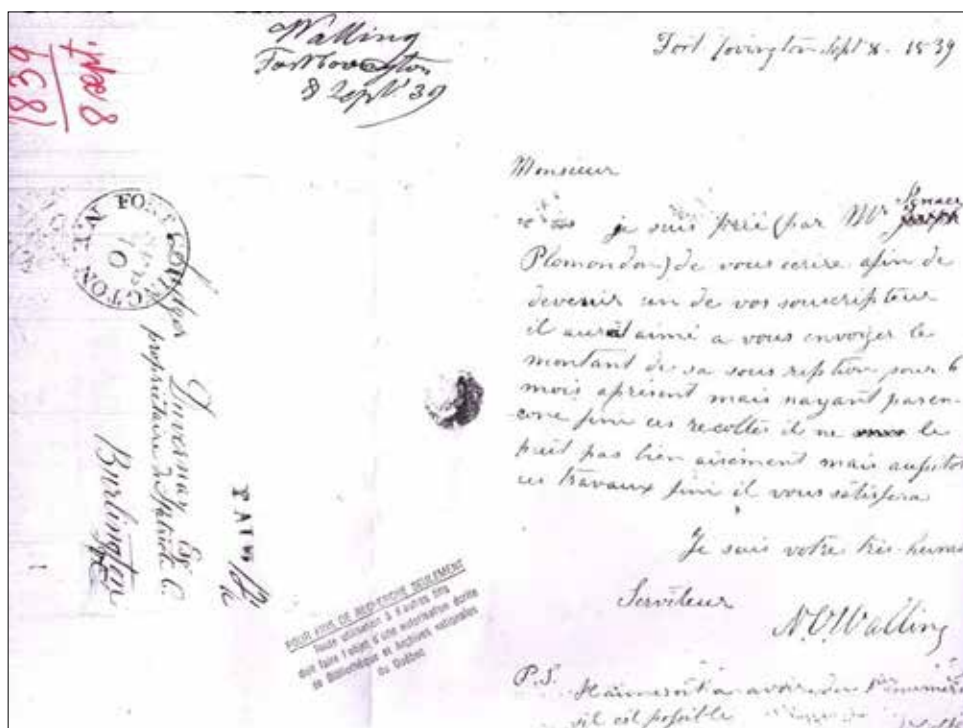 1839
8 Sept.
Walling
Fort Covington
8 Sept. 39
FORT COVINGTON
N.Y.
10
Ludger Duvernay Esq.
propriétaire du Patriote C.
Burlington
PAID
POUR FINS DE RECHERCHE SEULEMENT
Toute utilisation à d'autres fins
doit faire l'objet d'une autorisation écrite
de Bibliothèque et Archives nationales
du Québec
Fort Covington Sept 8. 1839
Monsieur
je suis prié (par Mr Ignace
Plomondon) de vous ecrire afin de
devenir un de vos souscripteur
il aurait aimé a vous envoyer le
montant de sa souscription pour 6
mois apresent mais nayant pas en-
core fini ces recoltes il ne le
peut pas bien airément mais aussitot
ces travaux fini il vous satisfera
Je suis votre très hum
Serviteur
N.V. Walling
P.S. avoir du 1er numero
sil est possible